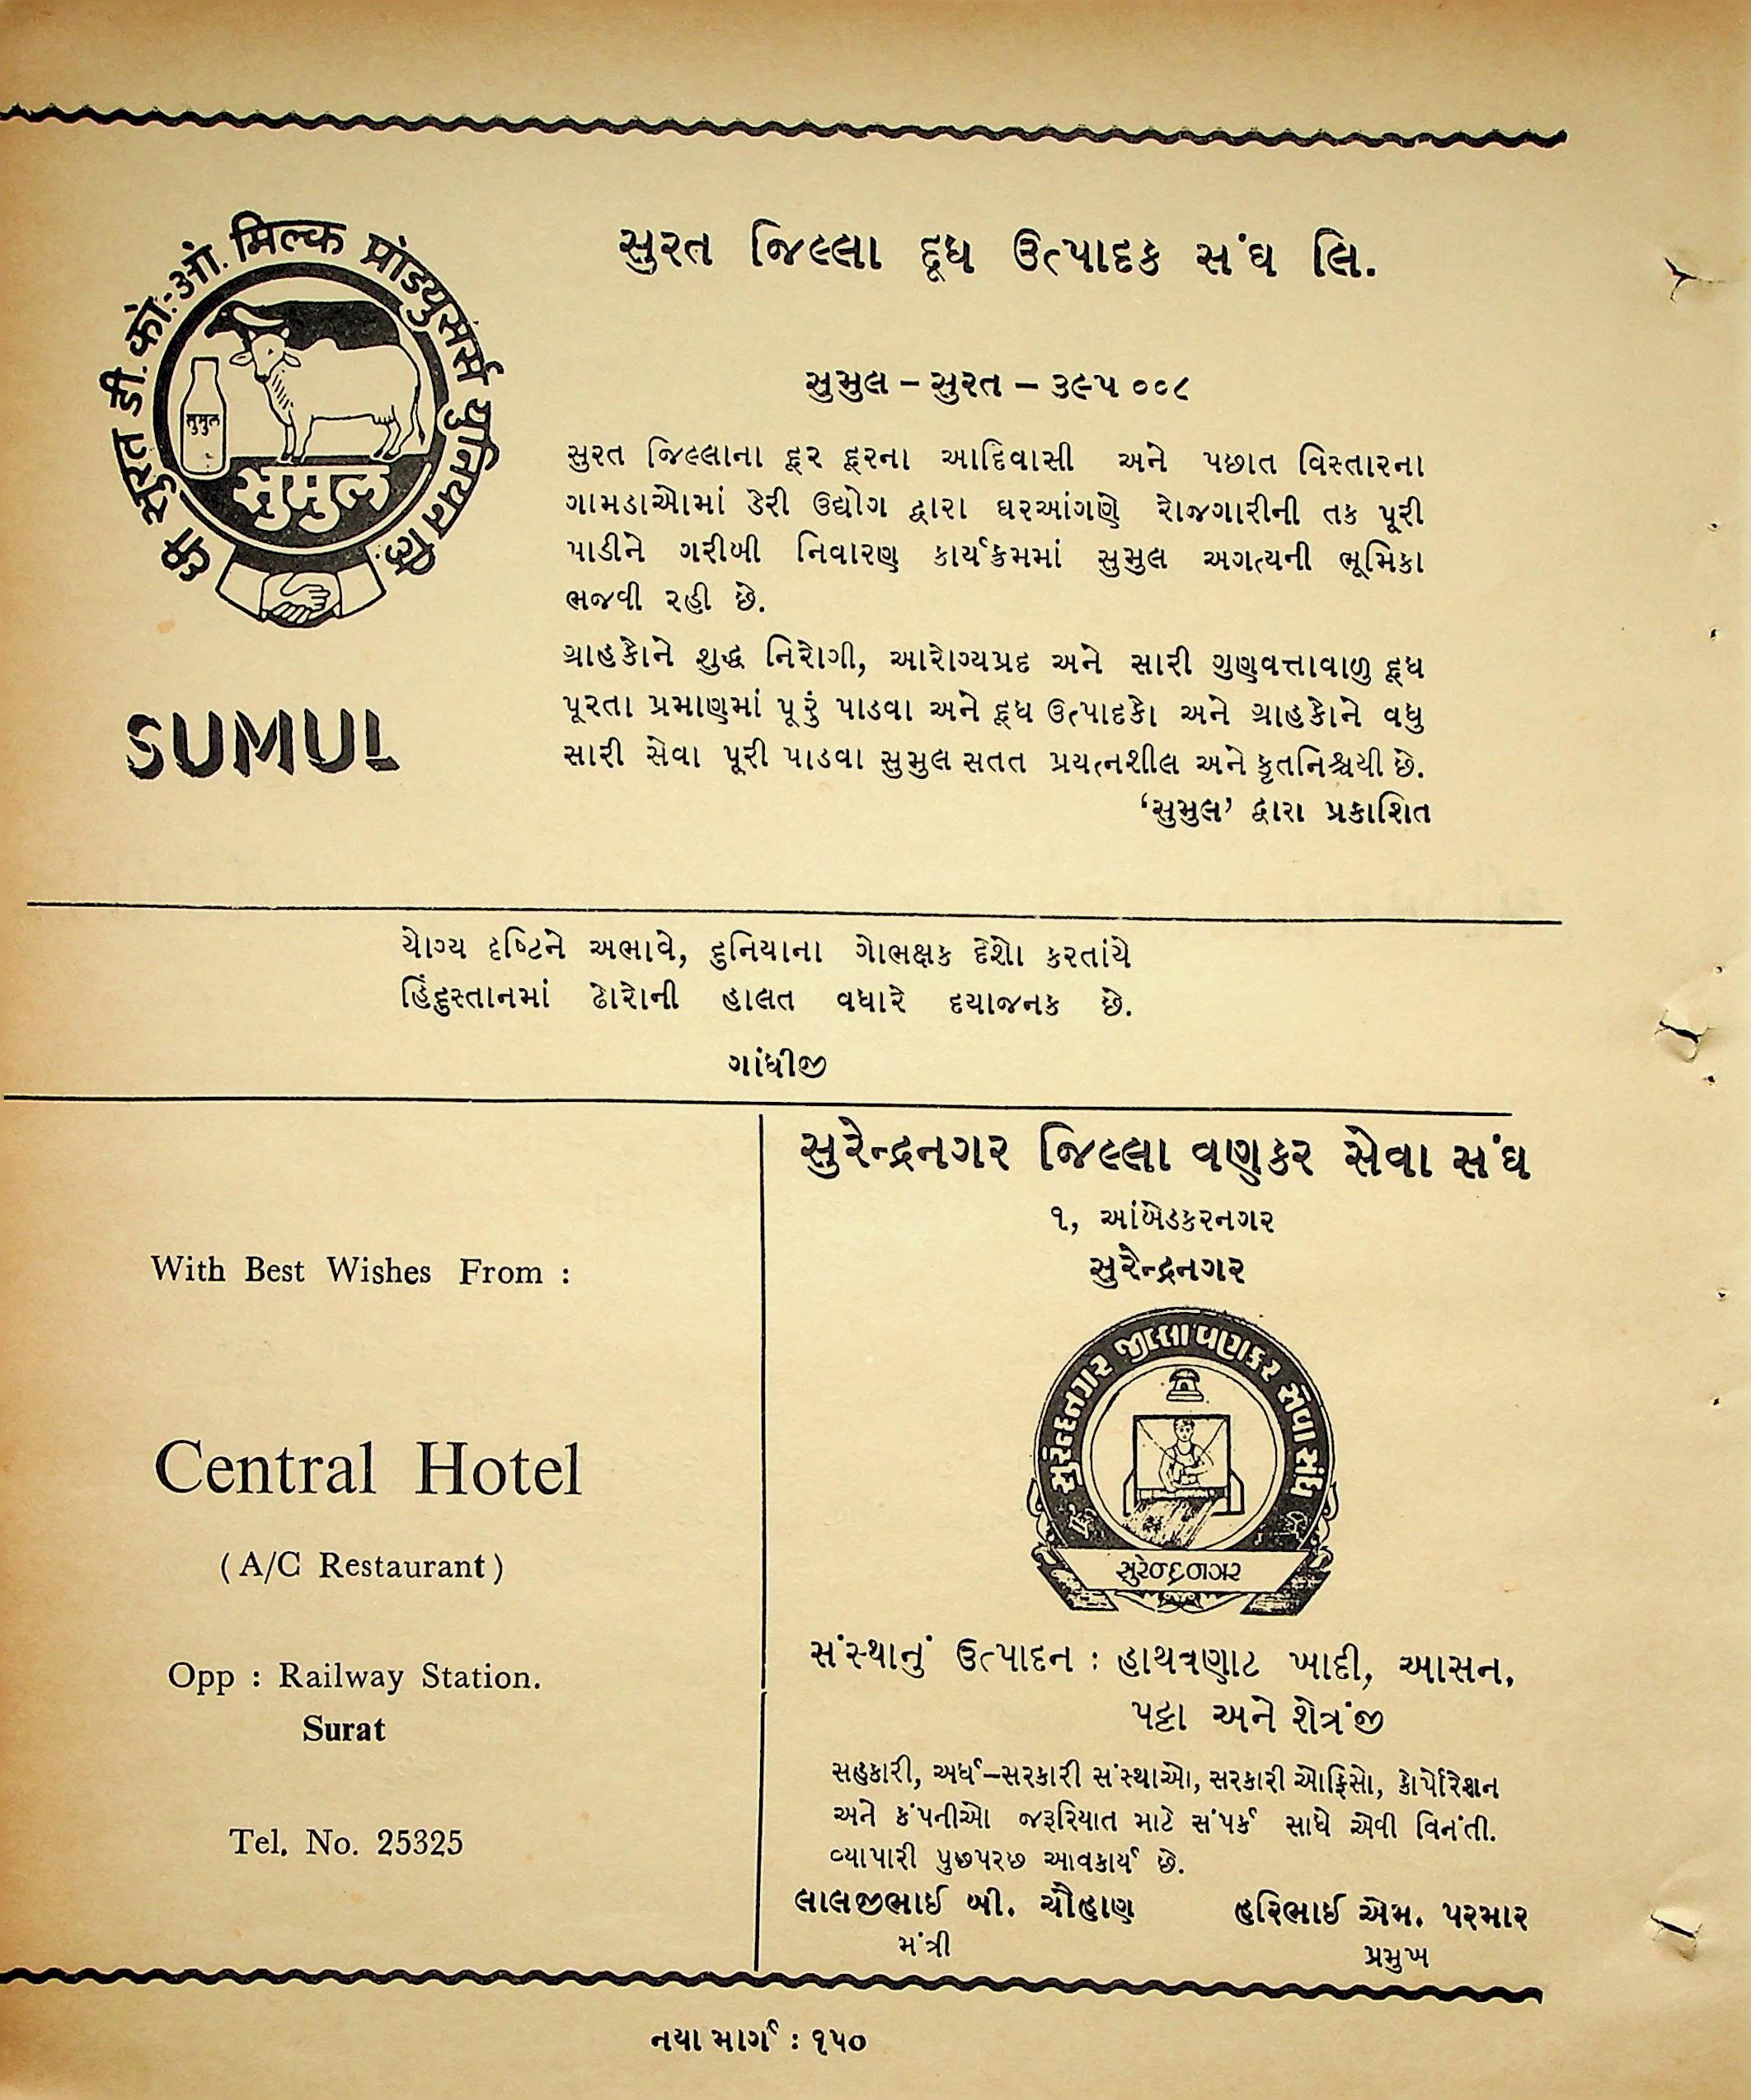 धी सुरत डी. को.-ओ. मिल्क प्रोड्युसर्स युनियन लि.
सुमुल
सुमुल
SUMUL
સુરત જિલ્લા દૂધ ઉત્પાદક સંઘ લિ.
સુમુલ – સુરત – ૩૯૫ ૦૦૮
સુરત જિલ્લાના દૂર દૂરના આદિવાસી અને પછાત વિસ્તારના
ગામડાઓમાં ડેરી ઉદ્યોગ દ્વારા ઘરઆંગણે રોજગારીની તક પૂરી
પાડીને ગરીબી નિવારણ કાર્યક્રમમાં સુમુલ અગત્યની ભૂમિકા
ભજવી રહી છે.
ગ્રાહકોને શુદ્ધ નિરોગી, આરોગ્યપ્રદ અને સારી ગુણવત્તાવાળુ દૂધ
પૂરતા પ્રમાણમાં પૂરું પાડવા અને દૂધ ઉત્પાદકો અને ગ્રાહકોને વધુ
સારી સેવા પૂરી પાડવા સુમુલ સતત પ્રયત્નશીલ અને કૃતનિશ્ચયી છે.
‘સુમુલ’ દ્વારા પ્રકાશિત
યોગ્ય દૃષ્ટિને અભાવે, દુનિયાના ગોભક્ષક દેશો કરતાંયે
હિંદુસ્તાનમાં ઢોરોની હાલત વધારે દયાજનક છે.
ગાંધીજી
With Best Wishes From :
Central Hotel
(A/C Restaurant)
Opp : Railway Station.
Surat
Tel. No. 25325
સુરેન્દ્રનગર જિલ્લા વણકર સેવા સંઘ
૧, આંબેડકરનગર
સુરેન્દ્રનગર
સુરેન્દ્રનગર જીલ્લા વણકર સેવા સંઘ
સુરેન્દ્રનગર
સંસ્થાનું ઉત્પાદન : હાથવણાટ ખાદી, આસન,
પટ્ટા અને શેત્રંજી
સહકારી, અર્ધ–સરકારી સંસ્થાઓ, સરકારી ઓફિસો, કોર્પોરેશન
અને કંપનીઓ જરૂરિયાત માટે સંપર્ક સાધે એવી વિનંતી.
વ્યાપારી પુછપરછ આવકાર્ય છે.
લાલજીભાઈ બી. ચૌહાણ હરિભાઈ એમ. પરમાર
મંત્રી પ્રમુખ
નયા માર્ગ : ૧૫૦